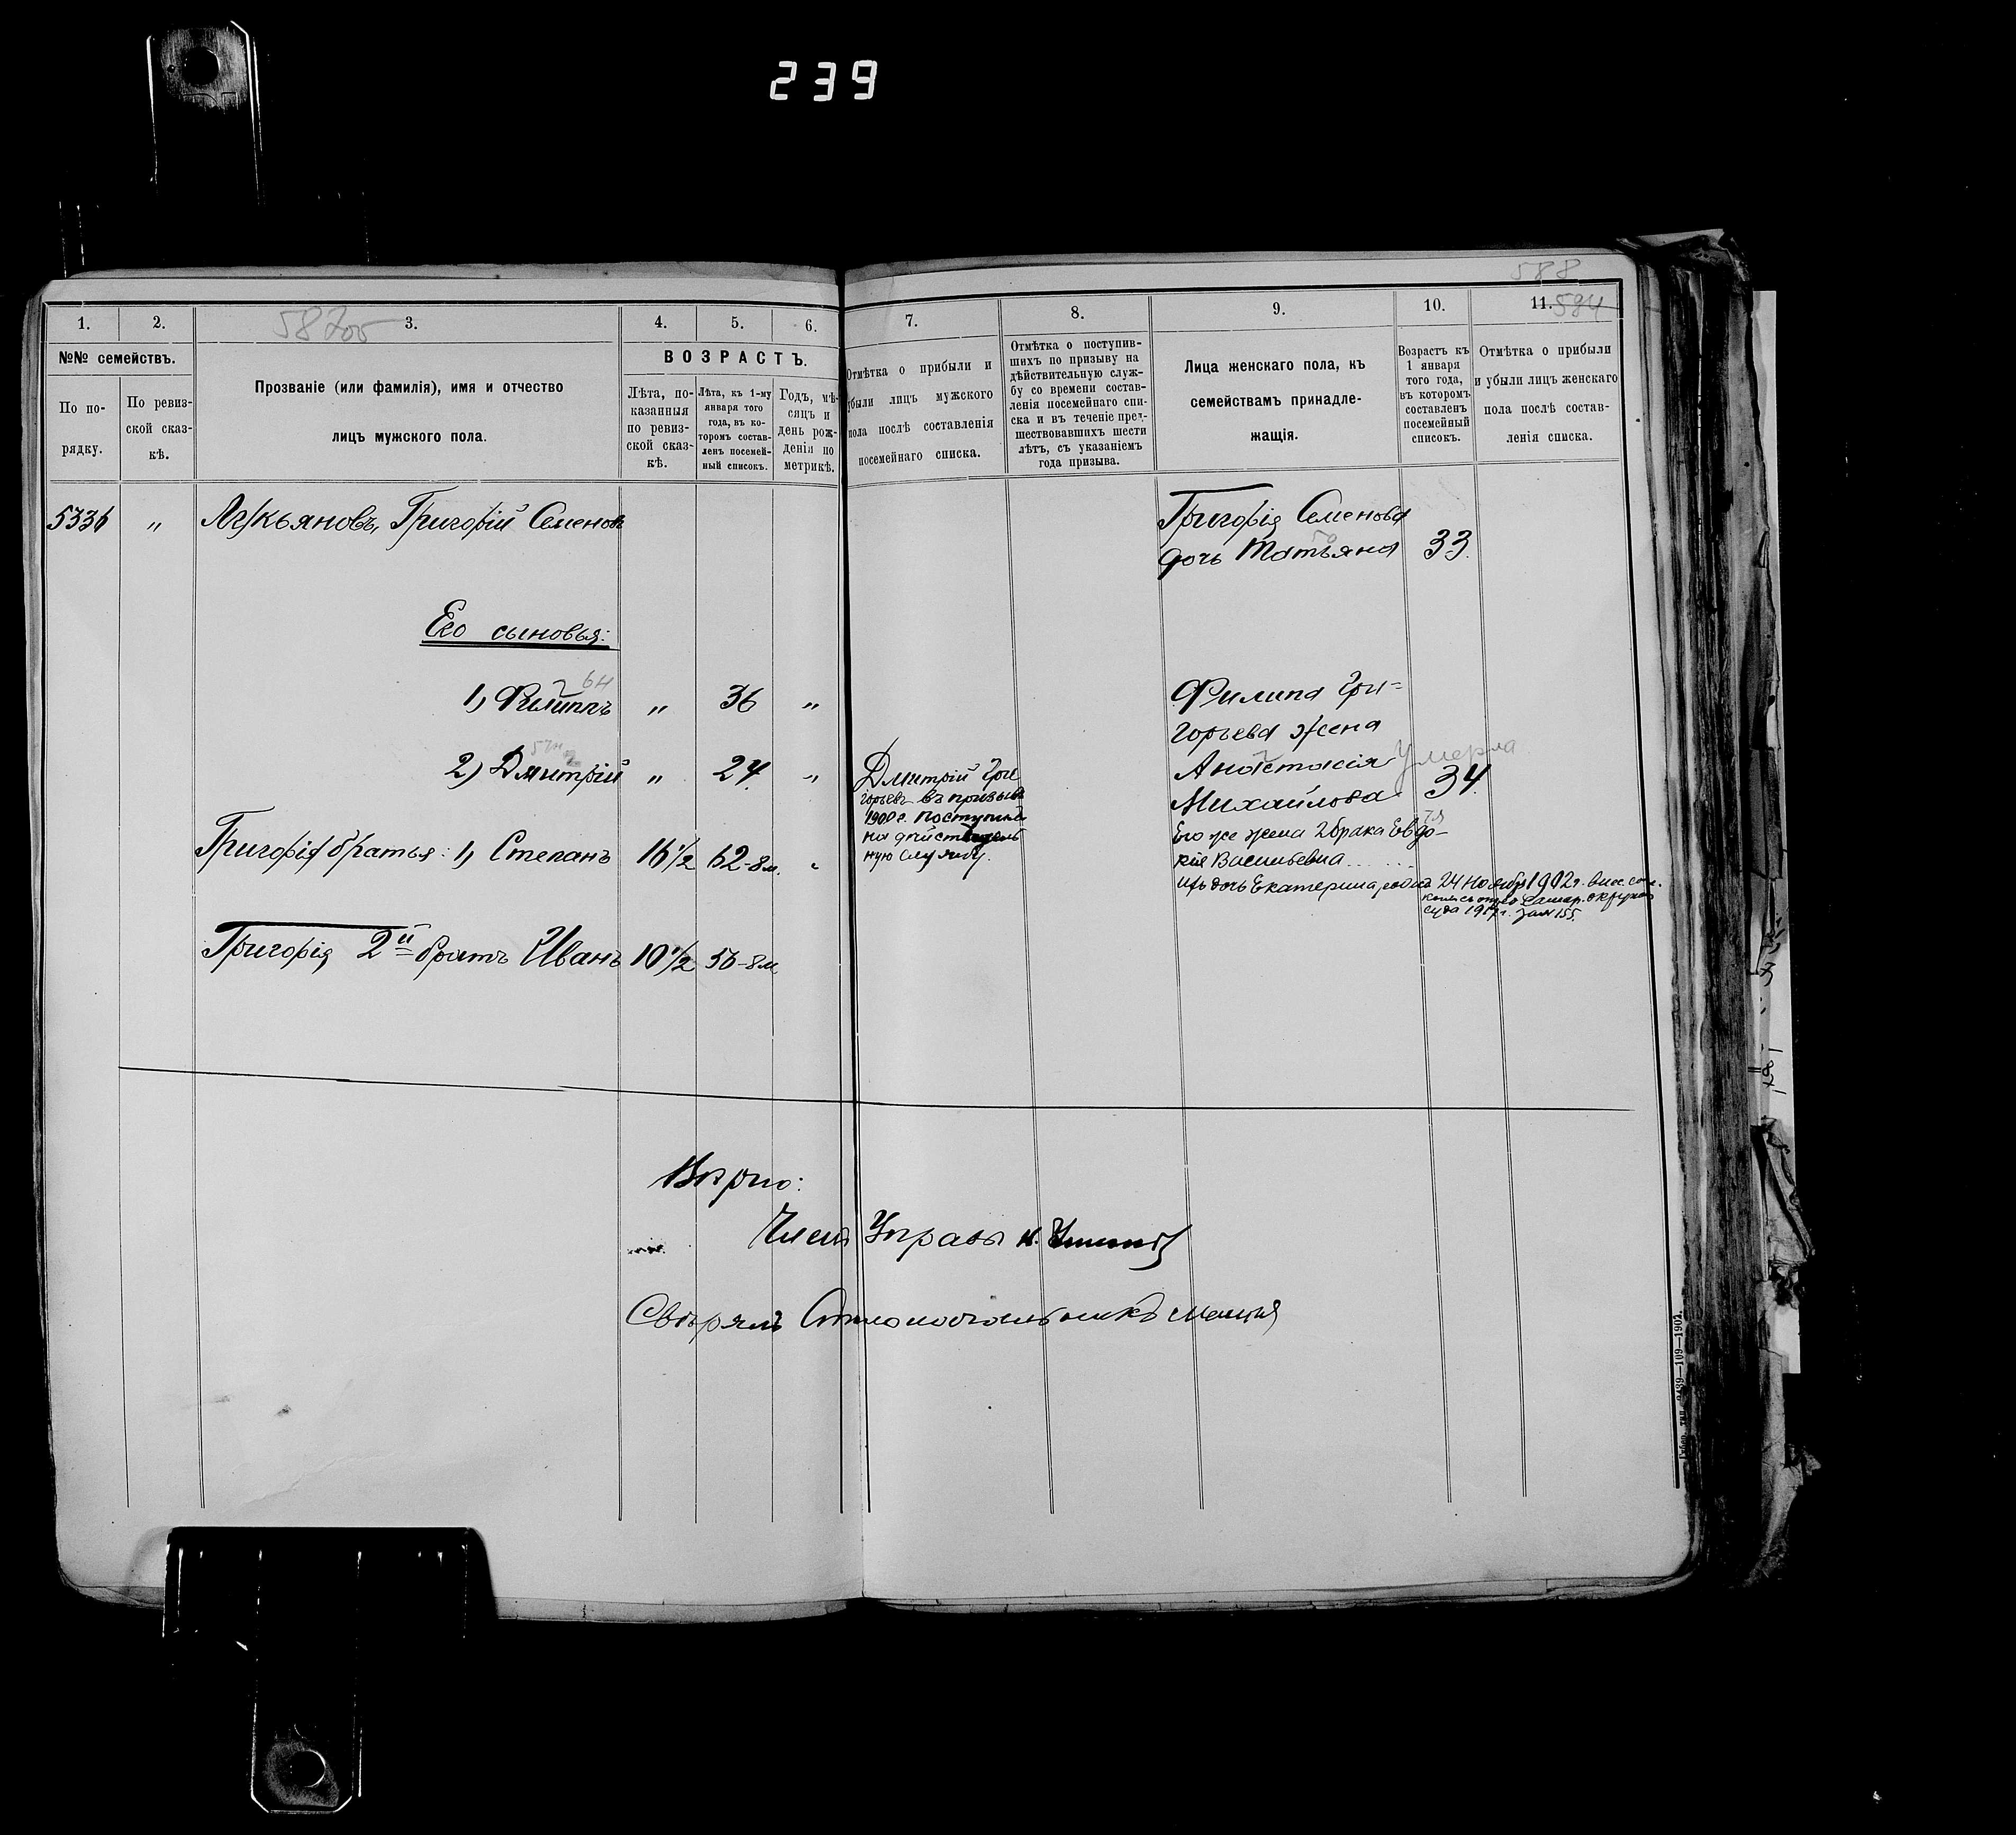 239
588
1.
2.
58705
3.
4.
5.
6.
7.
8.
9.
10.
11.
584
№№ семействъ.
По по-
рядку.
По ревиз-
ской сказ-
кѣ.
Прозваніе (или фамилія), имя и отчество
лицъ мужского пола.
ВОЗРАСТЪ.
Лѣта, по-
казанныя
по ревиз-
ской сказ-
кѣ.
Лѣта, къ 1-му
января того
года, въ ко-
торомъ состав-
ленъ посемей-
ный списокъ.
Годъ, мѣ-
сяцъ и
день рож-
денія по
метрикѣ.
Отмѣтка о прибыли и
убыли лицъ мужского
пола послѣ составленія
посемейнаго списка.
Отмѣтка о поступив-
шихъ по призыву на
дѣйствительную служ-
бу со времени состав-
ленія посемейнаго спи-
ска и въ теченіе пред-
шествовавшихъ шести
лѣтъ, съ указаніемъ
года призыва.
Лица женскаго пола, къ
семействамъ принадле-
жащія.
Возрастъ къ
1 января
того года,
въ которомъ
составленъ
посемейный
списокъ.
Отмѣтка о прибыли
и убыли лицъ женскаго
пола послѣ состав-
ленія списка.
5336 " Лукьяновъ, Григорій Семенов
Григорія Семенова
дочь Татьяна 33.
Его сыновья:
1) Филиппъ " 36 "
Филипа Гри=
горьева жена
Анастасія Умерла
Михайлова 34.
2) Дмитрій " 24. "
Дмитрій Гри
горьевъ въ призывъ
1900 г. поступилъ
на дѣйствитель
ную службу.
Его же жена 2 брака Евдо-
кія Васильевна
Ихъ дочь Екатерина родил. 24 Ноября 1902 г.
суда 1917 г. за № 155.
Григорія братья: 1) Степанъ 16½ 62-8м.
Григорія 2й братъ Иванъ 10½ 56-8м
Вѣрно:
Членъ Управы
Свѣрялъ Столоначальникъ